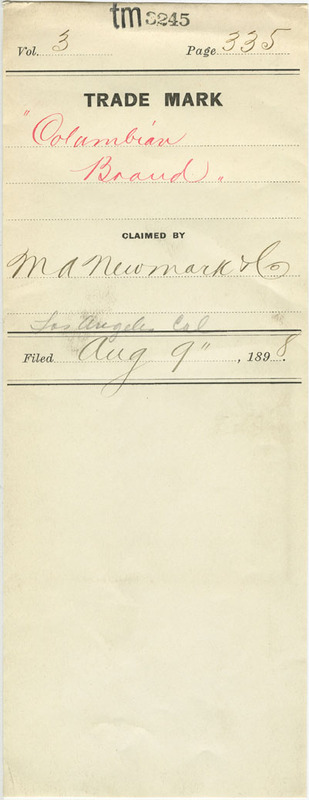 tm 3245
Vol. 3 Page 335
TRADE MARK
"Columbian
Brand"
CLAIMED BY
M A Newmark & Co
Los Angeles Cal
Filed Aug 9", 1898.